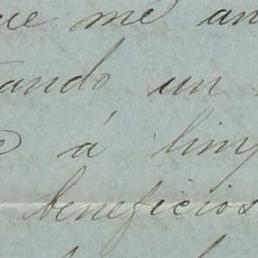 que me an
tando un
á limp
beneficios